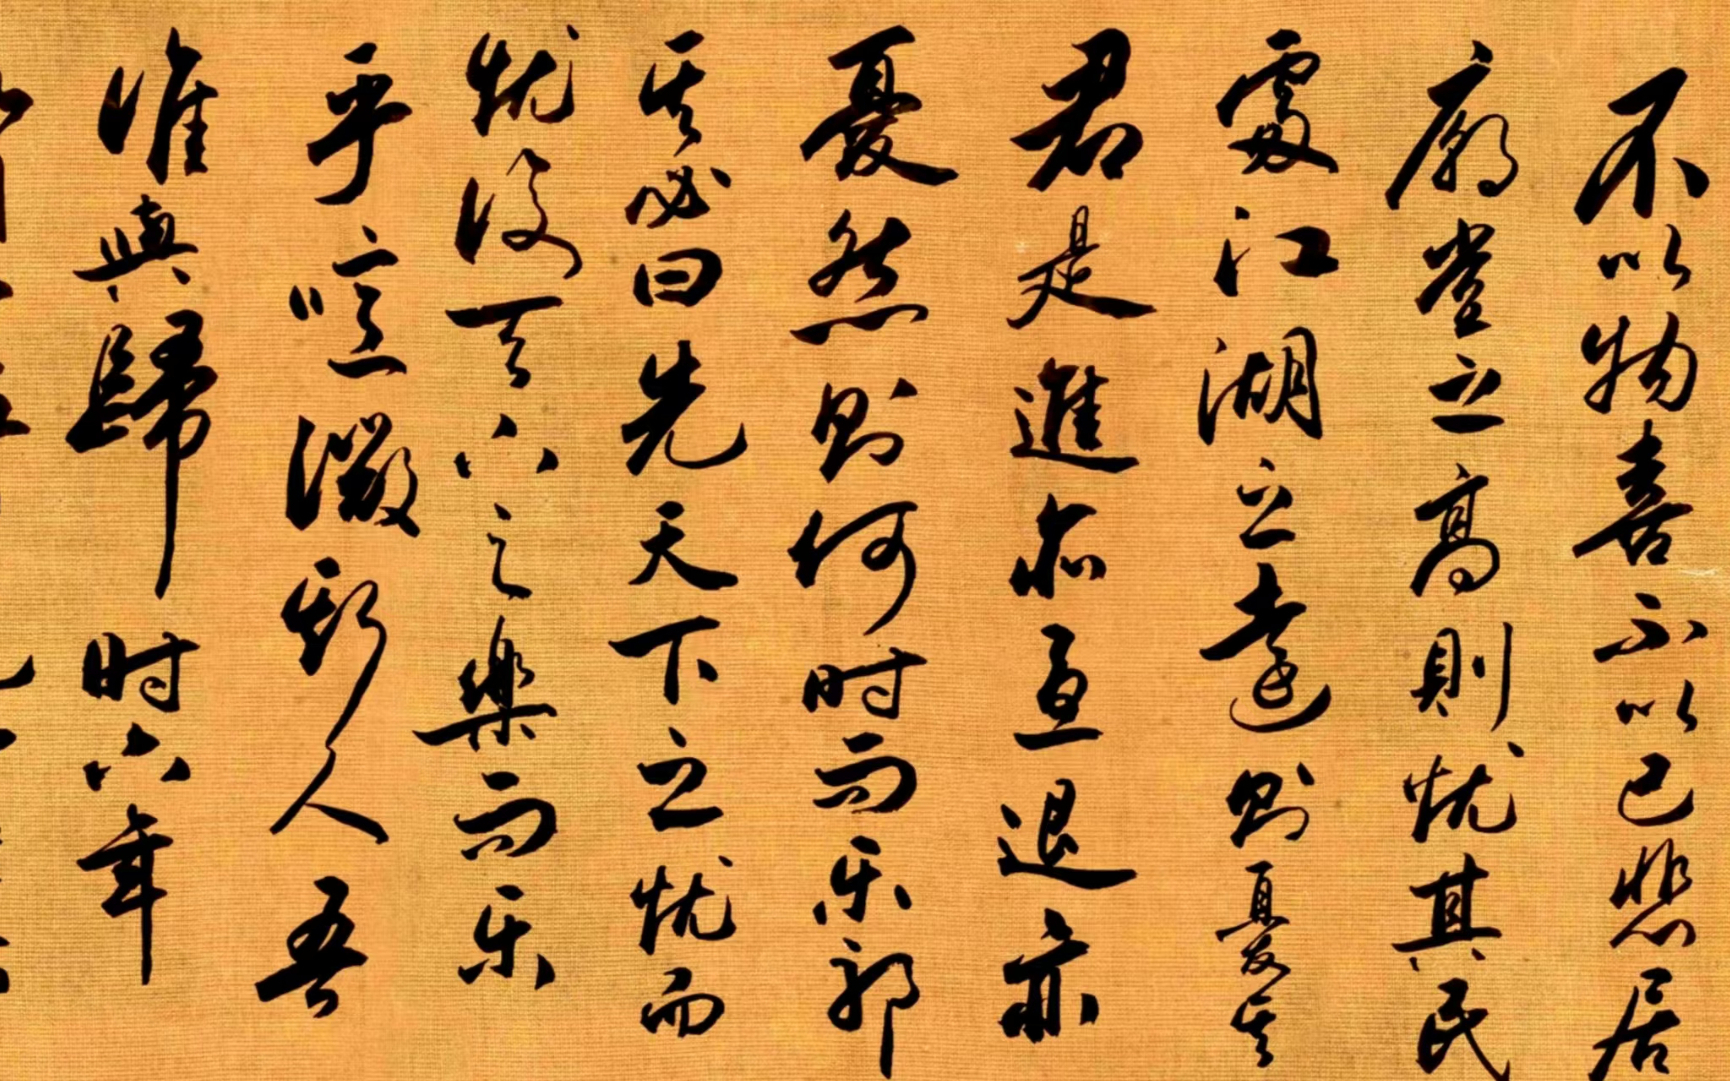 不以物喜不以己悲居
廟堂之高則忧其民
處江湖之遠则憂其
君是進亦憂退亦
憂然则何时而乐耶
其必曰先天下之忧而
忧後天下之樂而乐
乎噫微斯人吾
谁與歸时六年